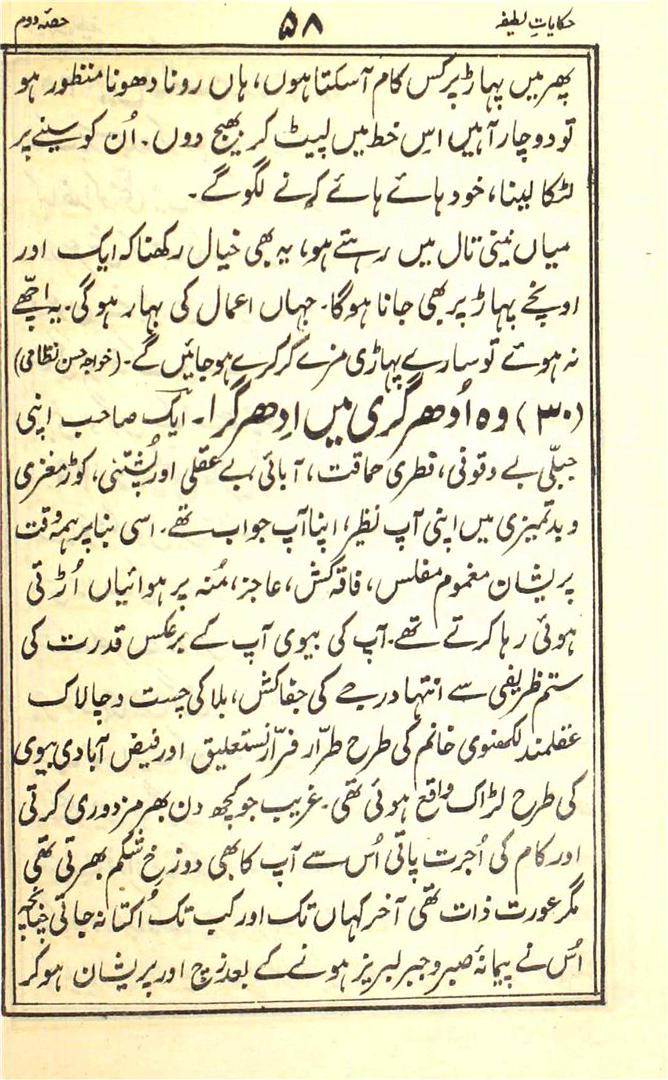 حکایاتِ لطیفہ ۵۸ حصّہ دوم
پھر میں پہاڑ پر کس کام آسکتا ہوں، ہاں رونا دھونا منظور ہو
تو دو چار آہیں اس خط میں لپیٹ کر بھیج دوں۔ اُن کو سینے پر
لٹکا لینا، خود ہائے ہائے کرنے لگو گے۔
میاں نینی تال میں رہتے ہو، یہ بھی خیال رکھنا کہ ایک اور
اونچے پہاڑ پر بھی جانا ہوگا۔ جہاں اعمال کی بہار ہوگی۔ یہ اچھے
نہ ہوئے تو سارے پہاڑی مزے کرکرے ہوجائیں گے۔ (خواجہ حسن نظامی)
(۳۰) وہ اُدھر گری میں اِدھر گرا۔ ایک صاحب اپنی
جبلّی بے وقوفی، فطری حماقت، آبائی بے عقلی اور پُشتنی، کوڑ مغزی
و بدتمیزی میں اپنی آپ نظیر، اپنا آپ جواب تھے۔ اسی بنا پر ہمہ وقت
پریشان مغموم مفلس، فاقہ کش، عاجز، مُنہ پر ہوائیاں اُڑتی
ہوئی رہا کرتے تھے۔ آپ کی بیوی آپ کے برعکس قدرت کی
ستم ظریفی سے انتہا درجے کی جفاکش، بلا کی چست و چالاک
عقلمند لکھنوی خانم کی طرح طرّار فرّار نستعلیق اور فیض آبادی بیوی
کی طرح لڑاک واقع ہوئی تھی۔ غریب جو کچھ دن بھر مزدوری کرتی
اور کام کی اُجرت پاتی اُس سے آپ کا بھی دوزخِ شکم بھرتی تھی
مگر عورت ذات تھی آخر کہاں تک اور کب تک اُکتا نہ جاتی چنانچہ
اُس نے پیمانۂ صبر و جبر لبریز ہونے کے بعد زچ اور پریشان ہوکر